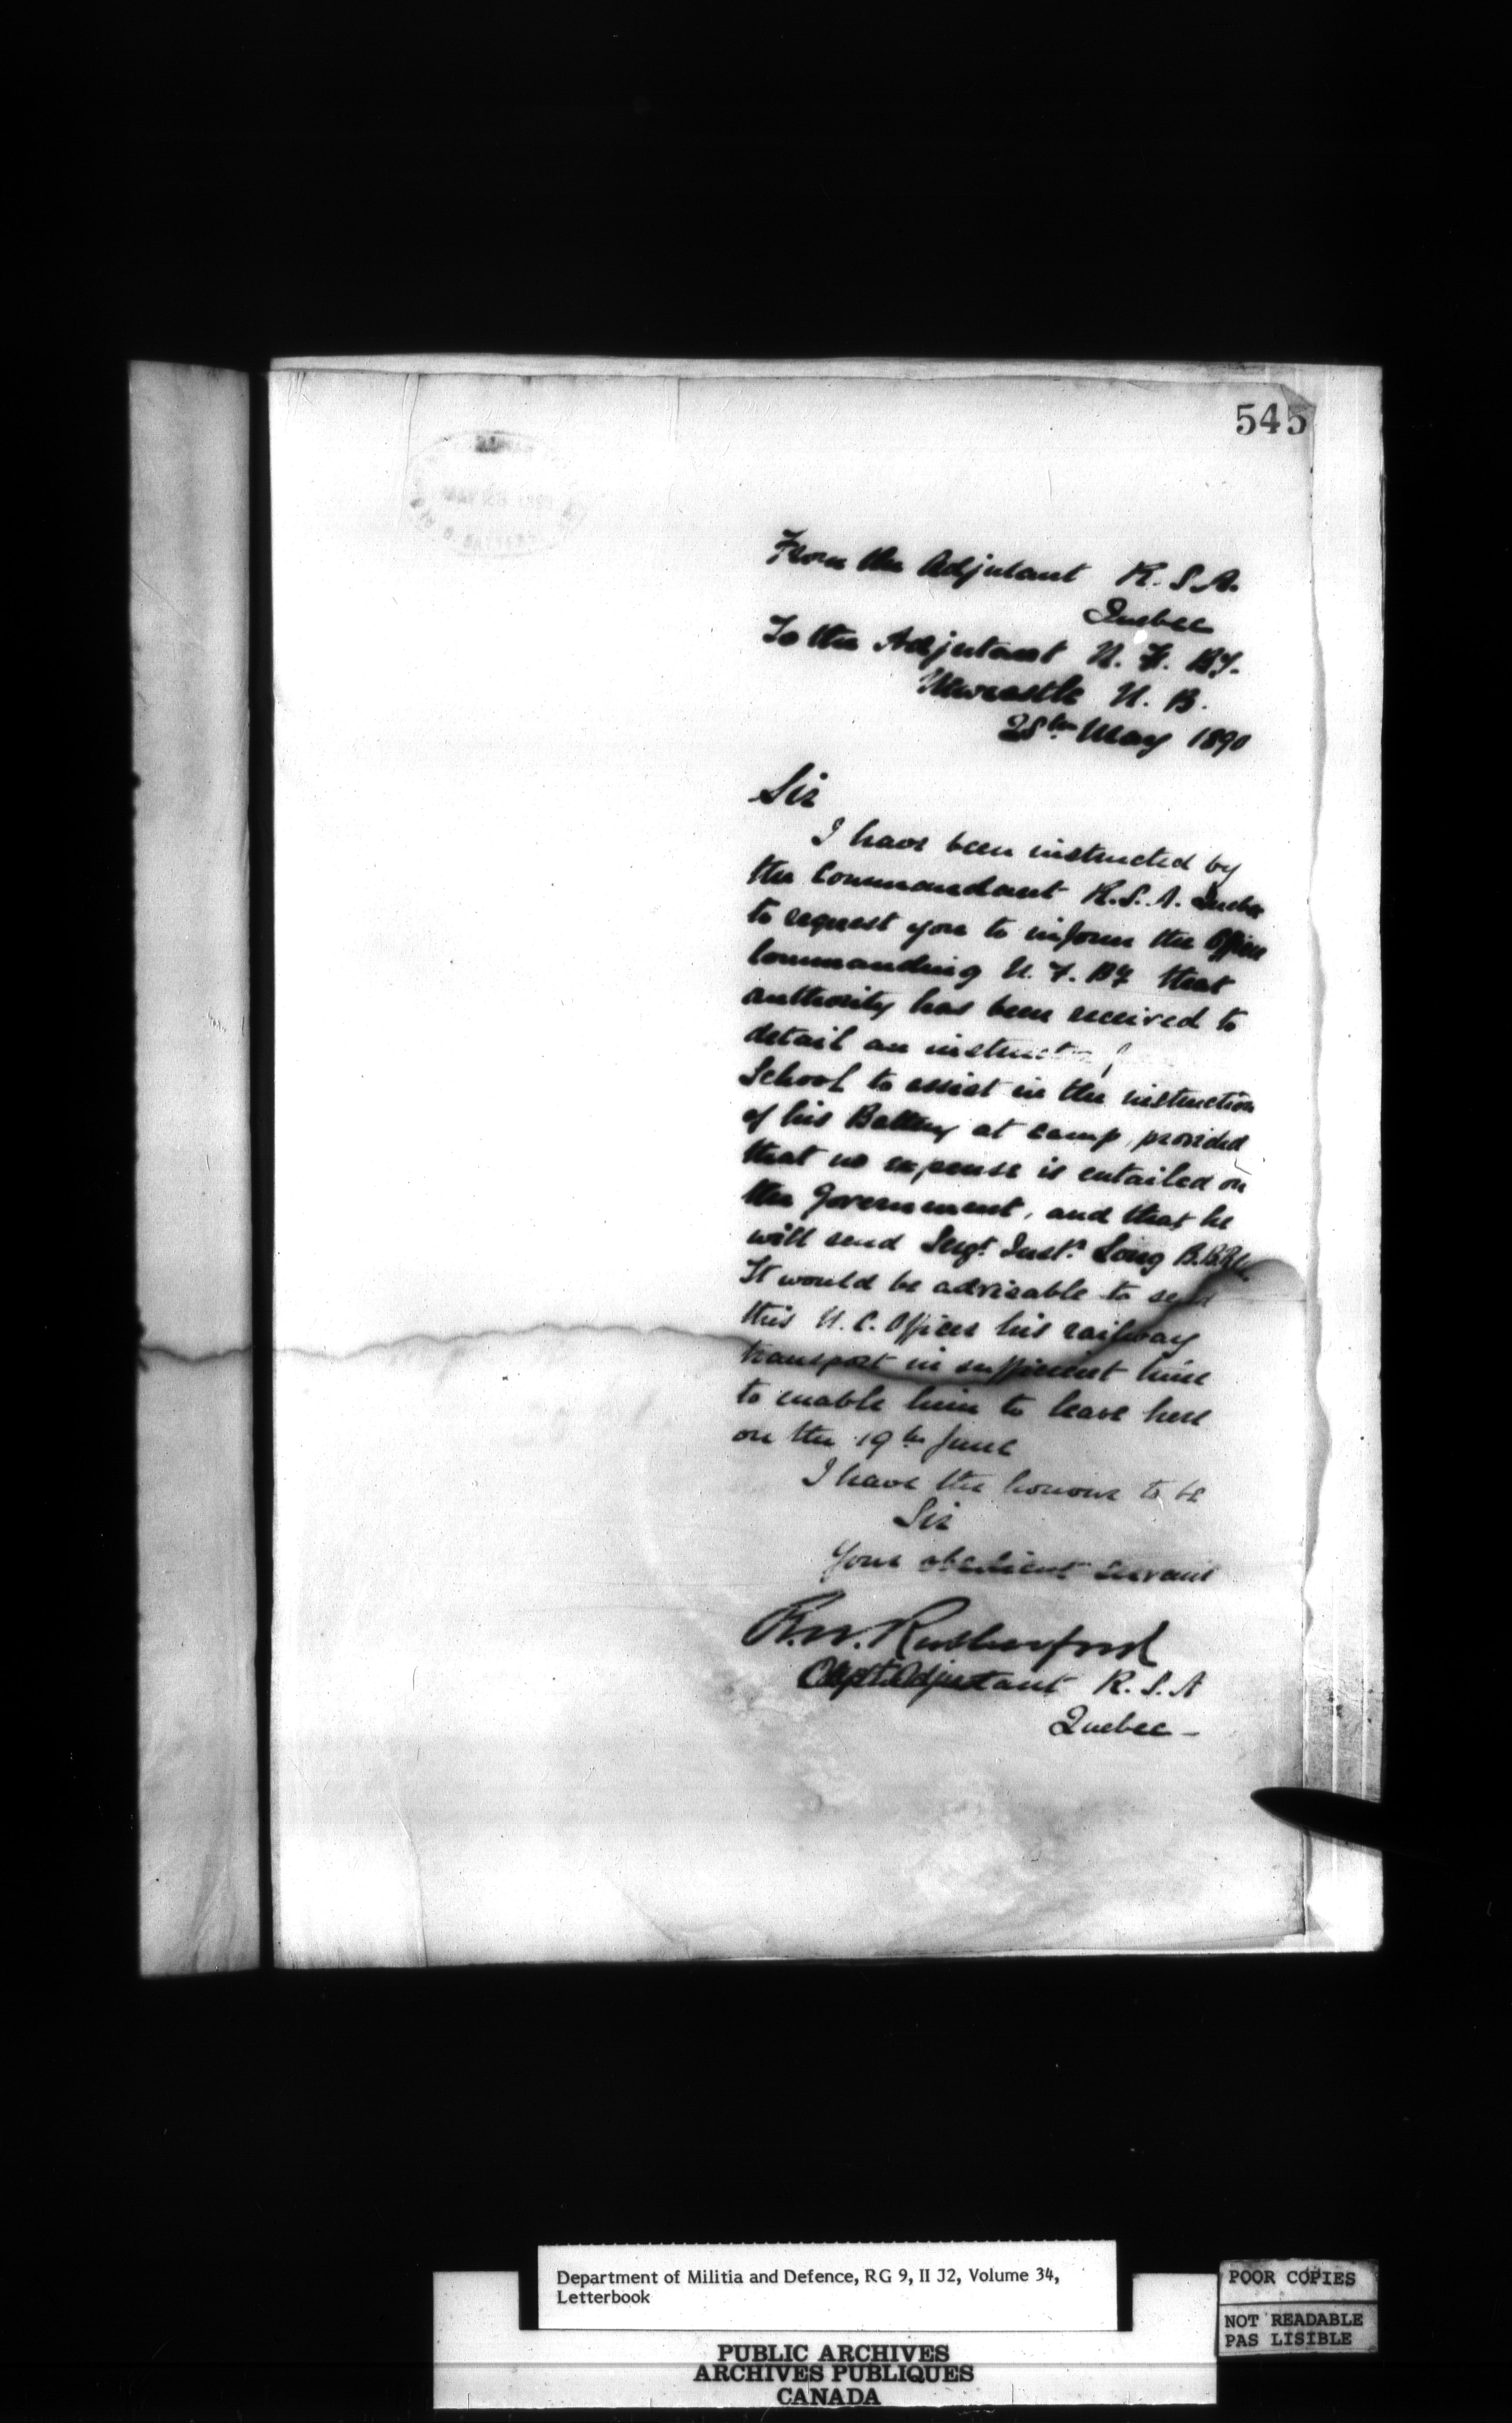 545
From the Adjutant R. S. A.
Quebec
To the Adjutant N. F. By.
Newcastle N. B.
28th May 1890
Sir
I have been instructed by
the Commandant R.S.A. Quebec
to request you to inform the Officer
Commanding N. F. By that
authority has been received to
detail an instructor
School to assist in the instruction
of his Battery at camp, provided
that no expense is entailed on
the Government, and that he
will send Sergt. Instr. Long
It would be advisable to send
this N. C. Officer his railway
transport in sufficient time
to enable him to leave here
on the 19th June
I have the honour to be
Sir
Your obedient servant
R.W. Rutherford
Capt. Adjutant R. S. A
Quebec -
Department of Militia and Defence, RG 9, II J2, Volume 34,
Letterbook
PUBLIC ARCHIVES
ARCHIVES PUBLIQUES
CANADA
POOR COPIES
NOT READABLE
PAS LISIBLE